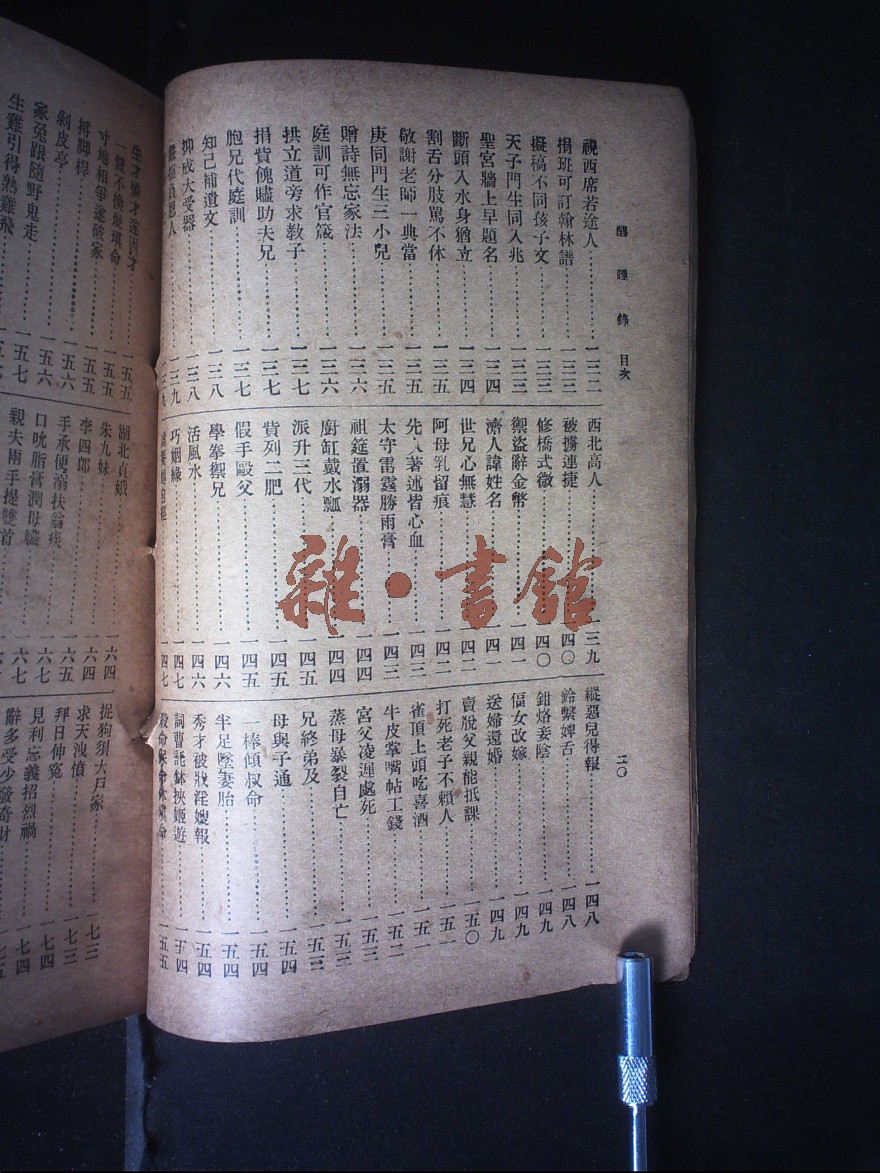 醒睡錄 目次
二〇
視西席若途人……一三二
捐班可訂翰林譜……一三三
擬稿不同孩子文……一三三
天子門生同入兆……一三三
聖宮牆上早題名……一三四
斷頭入水身猶立……一三四
割舌分肢罵不休……一三五
敬謝老師一典當……一三五
庚同門生三小兒……一三五
贈詩無忘家法……一三六
庭訓可作官箴……一三六
拱立道旁求教子……一三七
捐貲餽贐助夫兄……一三七
胞兄代庭訓……一三七
知己補遺文……一三八
抑戒大受器……一三八
西北高人……一三九
被擄連捷……一四〇
修橋式微……一四〇
禦盜辭金幣……一四一
濟人諱姓名……一四一
世兄心無慧……一四二
阿母乳留痕……一四二
先人著述皆心血……一四三
太守雷霆勝雨膏……一四三
祖筵置溺器……一四四
廚缸戴水瓢……一四四
派升三代……一四五
貲列二肥……一四五
假手毆父……一四五
學拳禦兄……一四六
活風水……一四六
巧姻緣……一四七
縱惡兒得報……一四八
鈴繫婢舌……一四八
鉗烙妾陰……一四九
傴女改嫁……一四九
送婦還婚……一四九
賣脫父親能抵課……一五〇
打死老子不賴人……一五一
雀頂上頭吃喜酒……一五一
牛皮掌嘴帖工錢……一五二
宮父凌遲處死……一五三
蒸母暴裂自亡……一五三
兄終弟及……一五三
母與子通……一五四
一棒傾叔命……一五四
半足墜妻胎……一五四
秀才被戕淫嫂報……一五四
詞曹託鉢挾姬遊……一五四
生才
一五五
命……一五五
寸地相爭遂破家……一五五
搭脚桿……一五六
剝皮亭……一五六
家兔跟隨野鬼走……一五七
生雞引得熟雞飛
湖北貞娘……一六四
朱九妹……一六四
李四郎……一六五
手承便溺扶翁疾……一六七
口吮脂膏潤母軀……一六七
親夫兩手提雙首
捉狗須大戶家……一七三
求天洩憤……一七三
拜日伸冤……一七四
見利忘義招烈禍……一七四
辭多受少發奇財……一七五
雜·書館